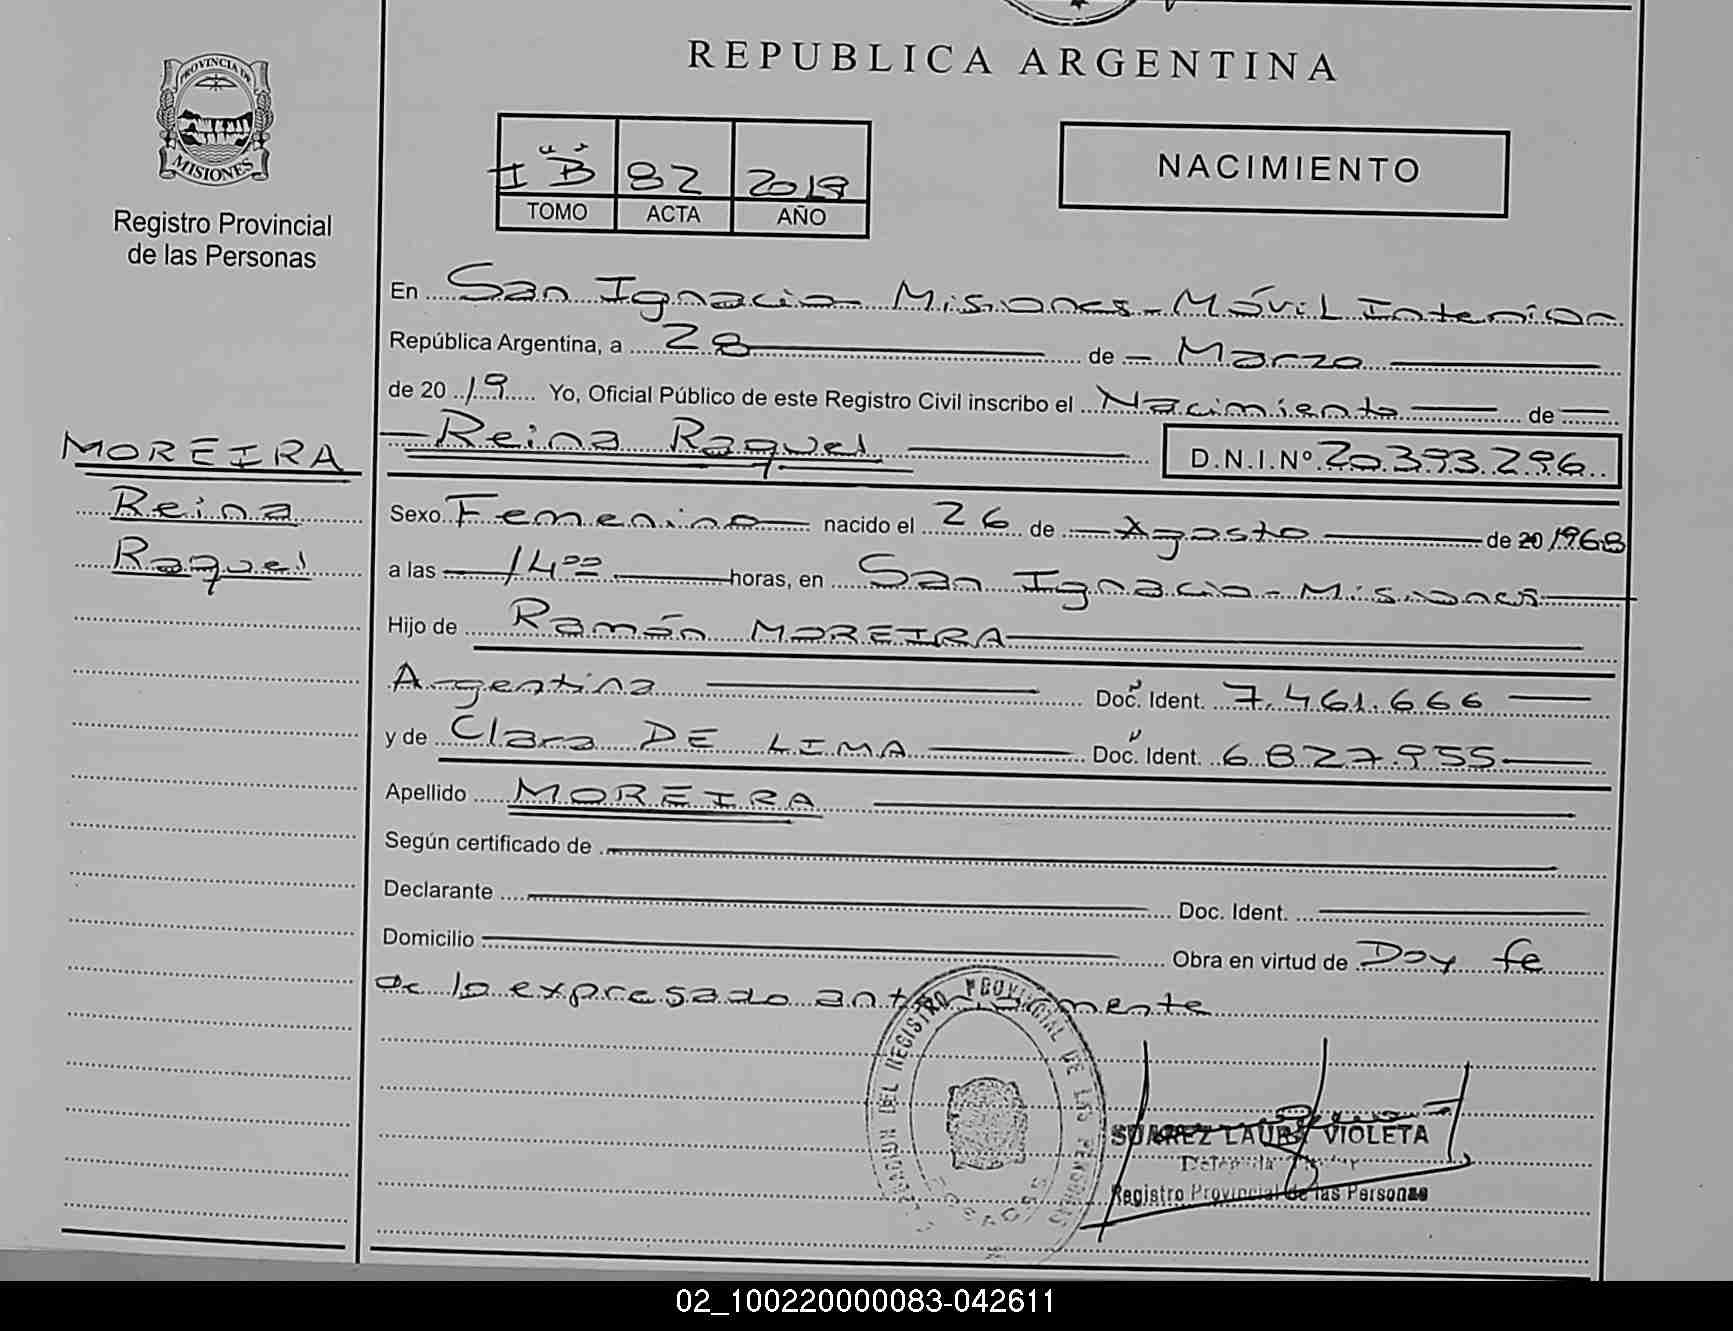 REPUBLICA ARGENTINA
PROVINCIA DE
MISIONES
Registro Provincial
de las Personas
II "B" 82 2019
TOMO ACTA AÑO
NACIMIENTO
En San Ignacio Misiones - Móvil Interior
República Argentina, a 28 de Marzo
de 2019 Yo, Oficial Público de este Registro Civil inscribo el Nacimiento de
Reina Raquel D.N.I.Nº 20.393.296
MOREIRA
Reina
Raquel
Sexo Femenino nacido el 26 de Agosto de 20 1968
a las 14⁰⁰ horas, en San Ignacio - Misiones
Hijo de Ramón MOREIRA
Argentina Doc. Ident. 7.461.666
y de Clara DE LIMA Doc. Ident. 6.827.955
Apellido MOREIRA
Según certificado de
Declarante Doc. Ident.
Domicilio Obra en virtud de Doy fe
de lo expresado anteriormente
DEL REGISTRO PROVINCIAL DE LAS PERSONAS
SUAREZ LAURA VIOLETA
Registro Provincial de las Personas
02_100220000083-042611